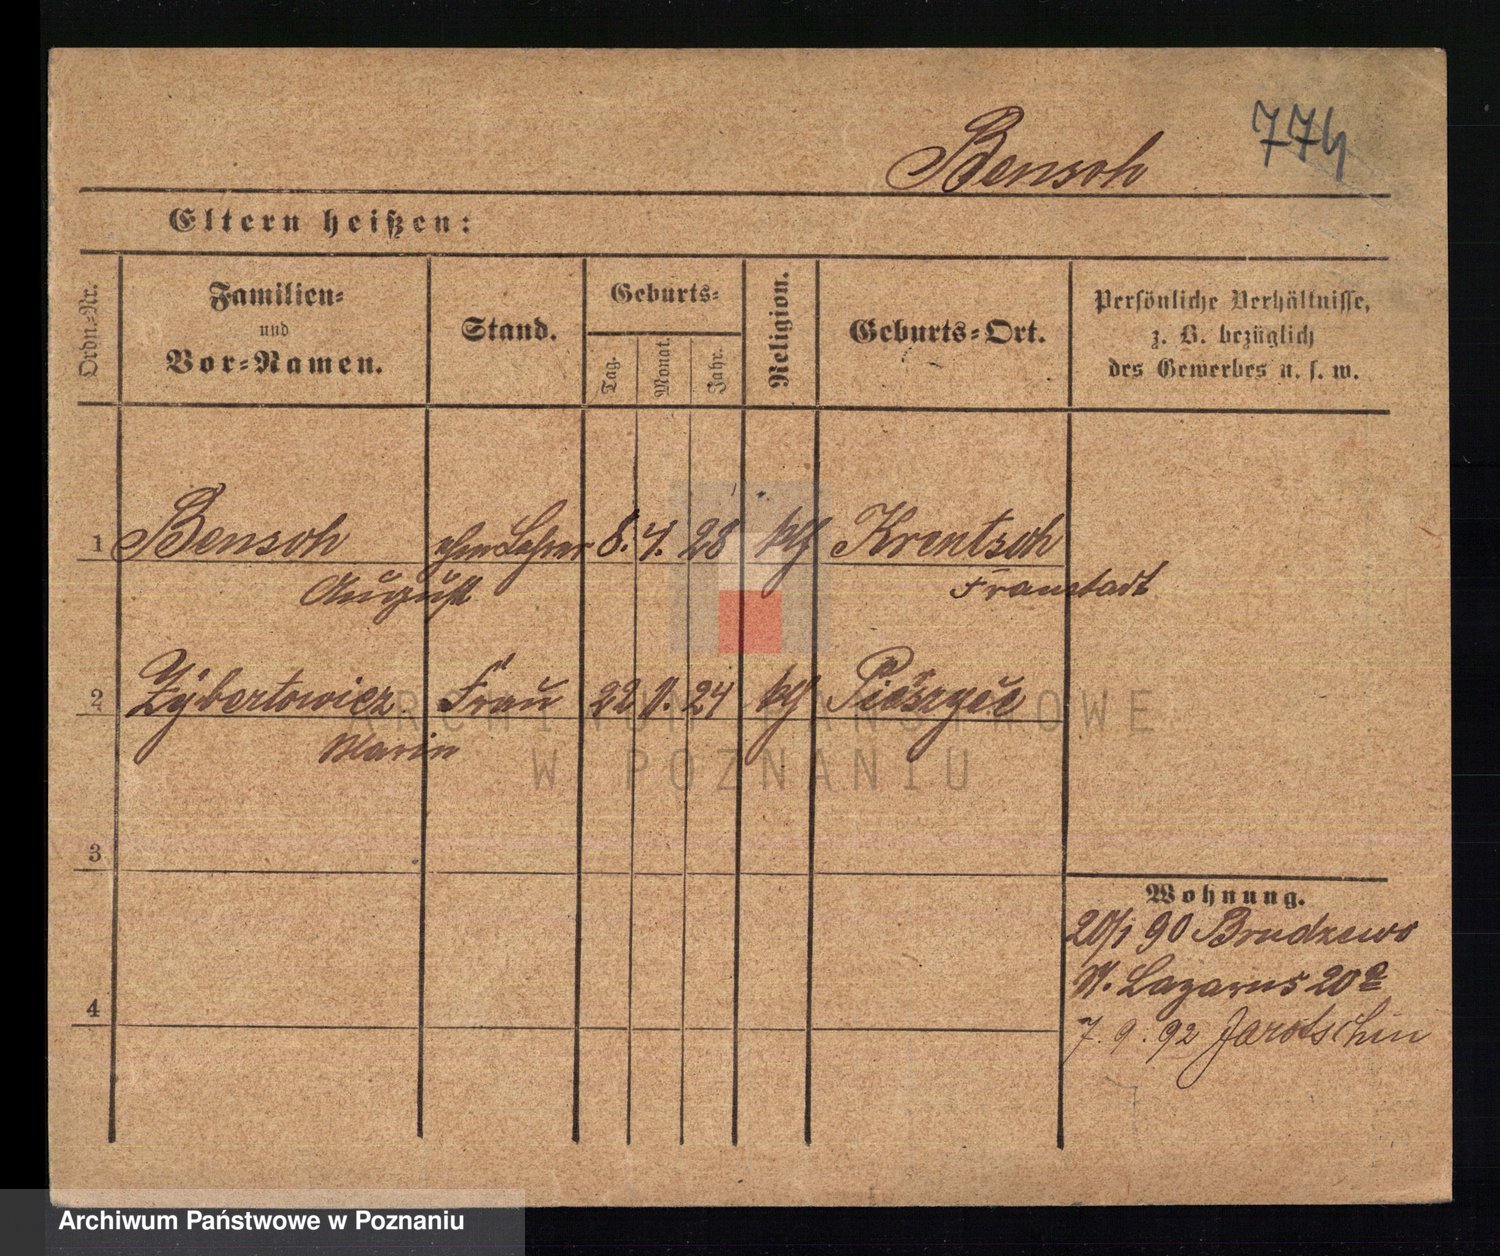 774
Bensch
Eltern heißen:
Ordn.-Nr.
Familien-
und
Vor-Namen.
Stand.
Geburts-
Tag.
Monat.
Jahr.
Religion.
Geburts-Ort.
Persönliche Verhältnisse,
z. B. bezüglich
des Gewerbes u. s. w.
1 Bensch ehem Lehrer 8. 4. 28 kth Krentsch
August Fraustadt
2 Zybertowicz Frau 22 9. 24 kth
Marie
3
4
Wohnung.
20/1 90 Brudzewo
St. Lazarus 20a
7. 9. 92 Jarotschin
ARCHIWUM PAŃSTWOWE
W POZNANIU
Archiwum Państwowe w Poznaniu